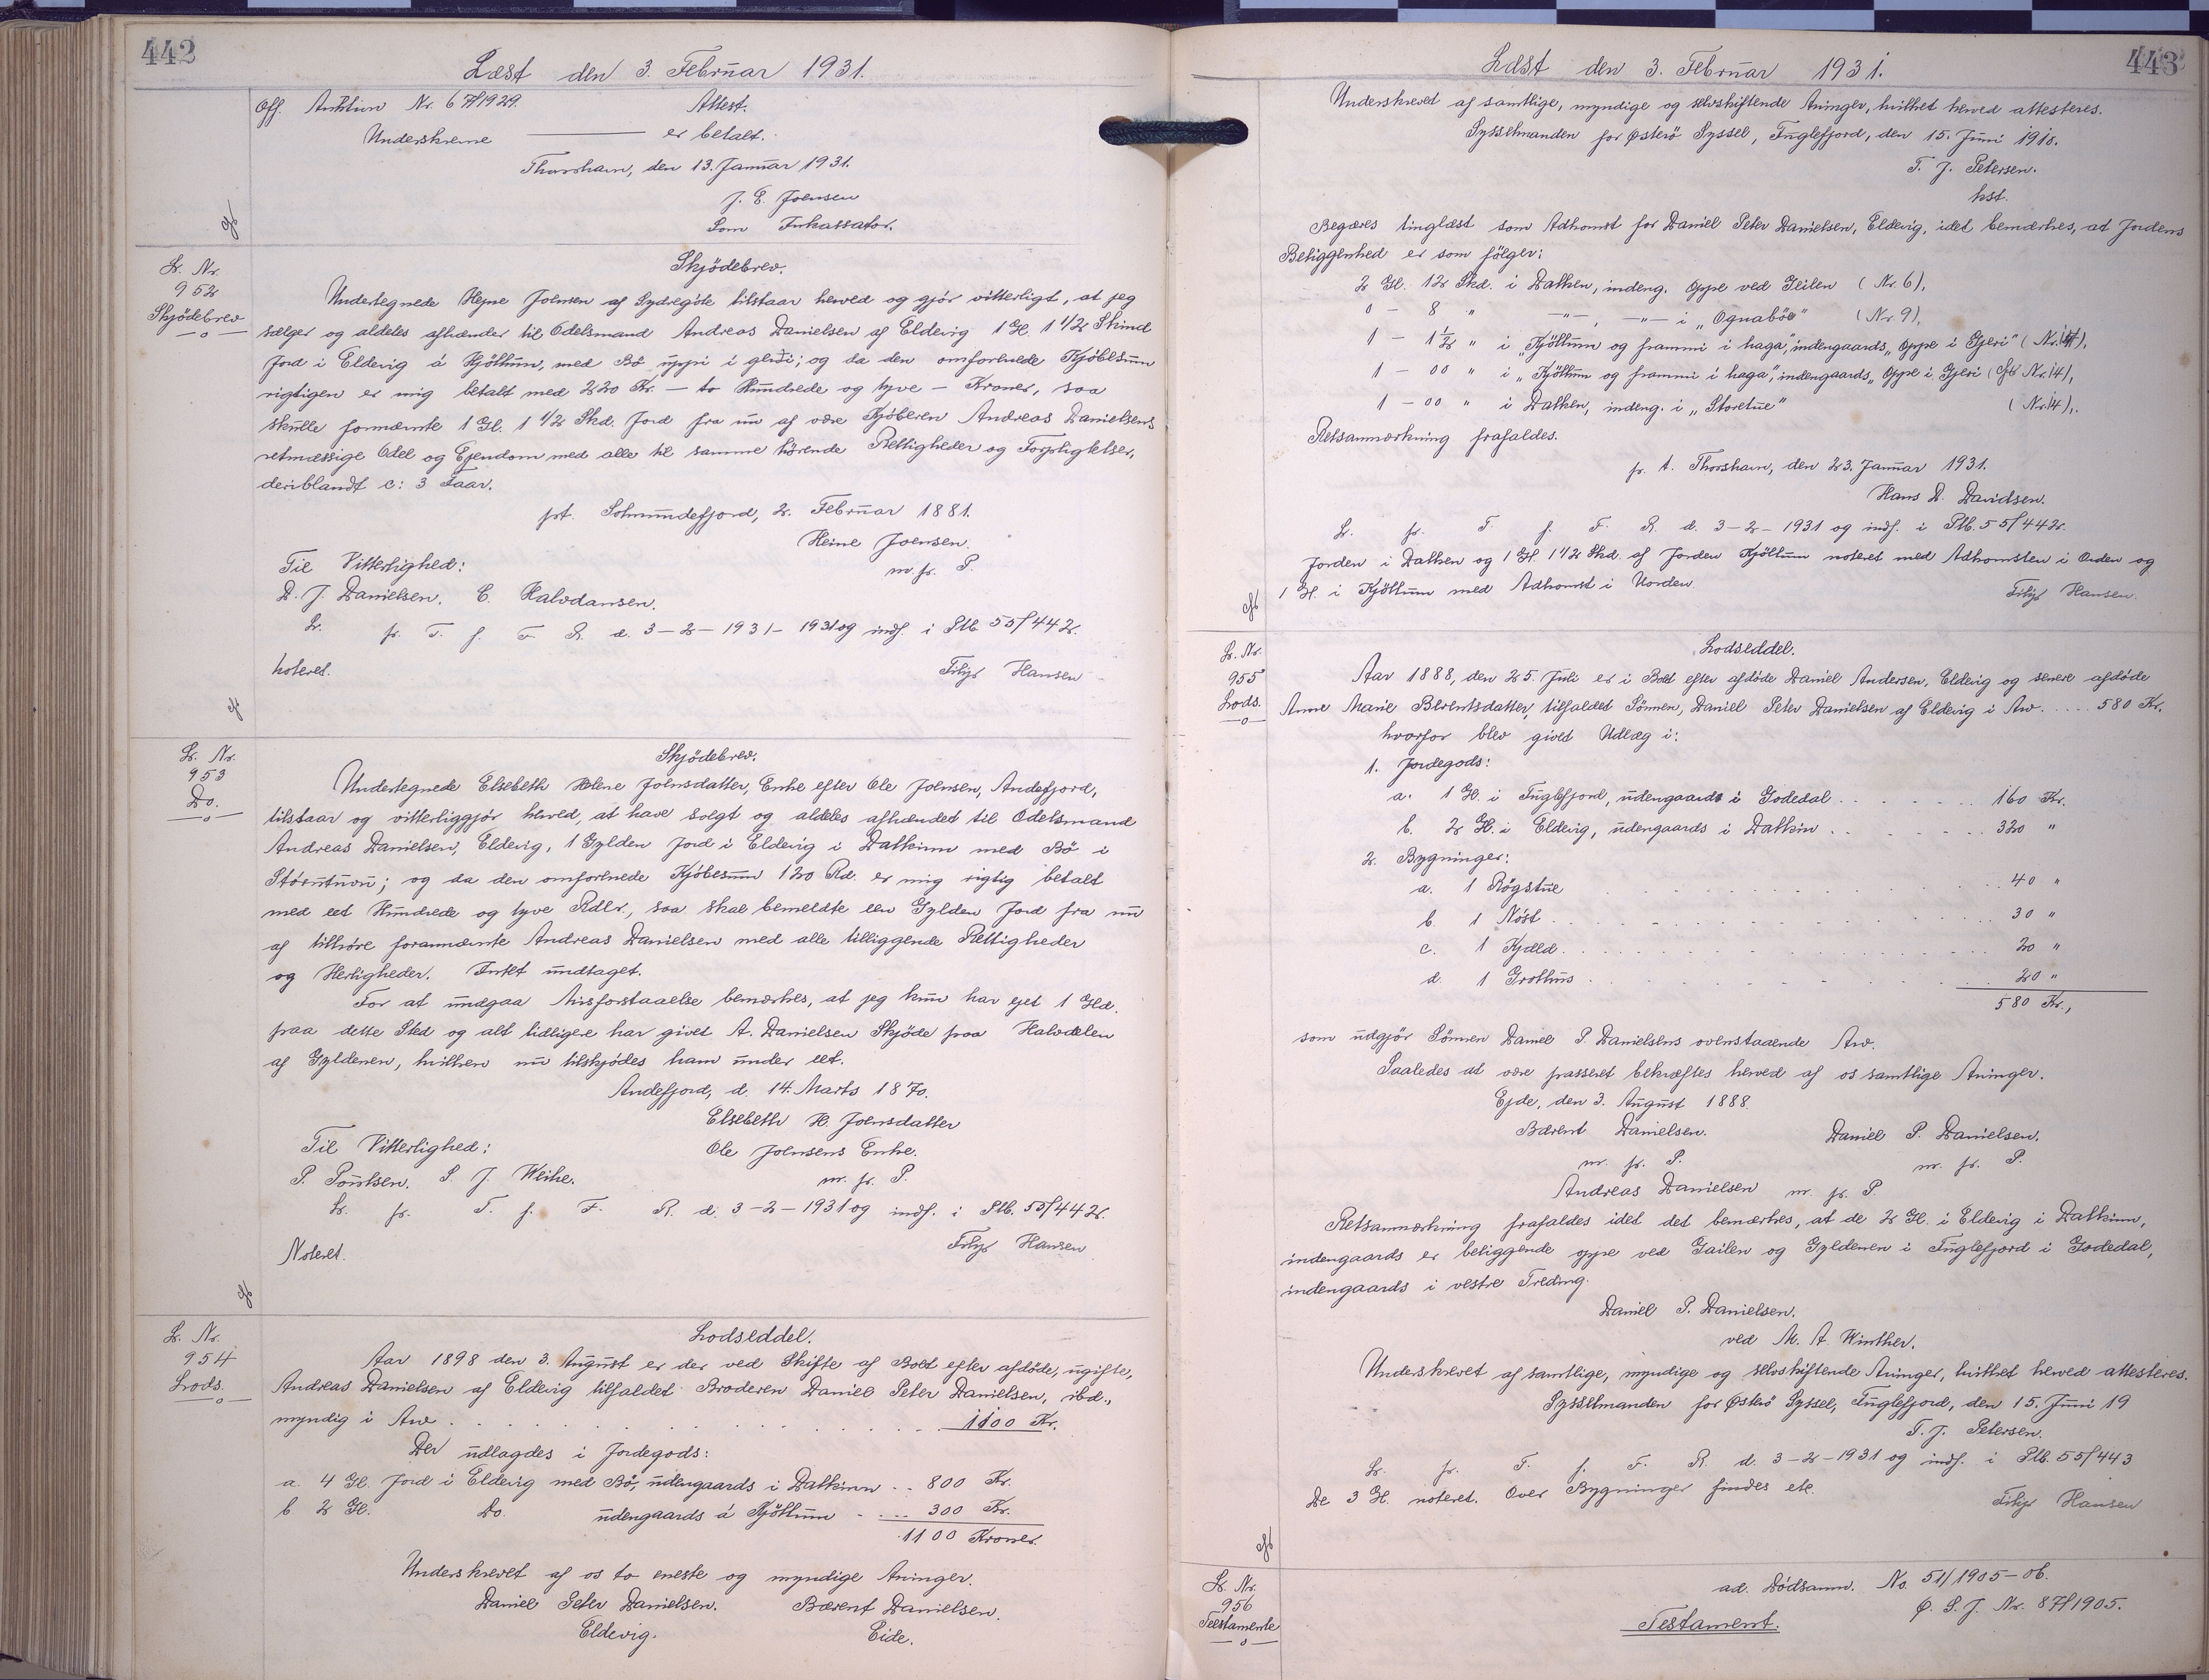 442
Læst den 3. Februar 1931.
Off. Auktion Nr. 67/1929. Attest.
Underskrevne ——— er betalt.
Thorshavn, den 13. Januar 1931.
J. E. Joensen
Som Inkassator.
L. Nr.
952
Skjödebrev
Skjödebrev.
Undertegnede Hejne Joensen af Sydregöte tilstaar herved og gjör vitterligt, at jeg
sælger og aldeles afhænder til Odelsmand Andreas Danielsen af Eldevig 1 Gl. 1 1/2 Skind
Jord i Eldevig á Kjöllum, med Bö uppi i gerði; og da den omforenede Kjöbesum
rigtigen er mig betalt med 220 Kr. — to Hundrede og tyve — Kroner, saa
skulle fornævnte 1 Gl. 1 1/2 Skd. Jord fra nu af være Kjöberen Andreas Danielsens
retmæssige Odel og Ejendom med alle til samme hörende Rettigheder og Forpligtelser,
deriblandt c: 3 Faar.
pt. Solmundefjord, 2. Februar 1881.
Heine Joensen.
m. p. P.
Til Vitterlighed:
D. J. Danielsen. C. Halvdansen.
L. p. T. f. F. R. d. 3-2-1931- 1931 og indf. i Ptb 55/442.
Noteret.
Filip Hansen
L. Nr.
953
Do.
Skjödebrev.
Undertegnede Elsebeth Helene Joensdatter, Enke efter Ole Joensen, Andefjord,
tilstaar og vitterliggjör herved, at have solgt og aldeles afhændet til Odelsmand
Andreas Danielsen, Eldevig, 1 Gylden Jord i Eldevig i Dalkinum med Bö i
Störutuvu; og da den omforenede Kjöbesum 120 Rd. er mig rigtig betalt
med eet Hundrede og tyve Rdlr., saa skal bemeldte een Gylden Jord fra nu
af tilhøre forannævnte Andreas Danielsen med alle tilliggende Rettigheder
og Herligheder. Intet undtaget.
For at undgaa Misforstaaelse bemærkes, at jeg kun har ejet 1 Gld.
paa dette Sted og alt tidligere har givet A. Danielsen Skjöde paa Halvdelen
af Gyldenen, hvilken nu tilskjödes ham under eet.
Andefjord, d. 14. Marts 1870.
Elsebeth H. Joensdatter
Ole Joensens Enke.
m. p. P.
Til Vitterlighed:
P. Poulsen. S. J. Weihe.
L. p. T. f. F. R. d. 3-2-1931 og indf. i Ptb. 55/442.
Noteret.
Filip Hansen
L. Nr.
954
Lods.
Lodseddel.
Aar 1898 den 3. August er der ved Skifte af Boet efter afdöde, ugifte,
Andreas Danielsen af Eldevig tilfaldet Broderen Daniel Peter Danielsen, ibd.,
myndig i Arv . . . . 1100 Kr.
Der udlagdes i Jordegods:
a. 4 Gl. Jord i Eldevig med Bö, udengaards i Dalkinum . . 800 Kr.
b 2 Gl. Do. udengaards á Kjöllum . . . 300 Kr.
1100 Kroner.
Underskrevet af os to eneste og myndige Arvinger.
Daniel Peter Danielsen. Bærent Danielsen.
Eldevig. Eide.
443
Læst den 3. Februar 1931.
Underskrevet af samtlige, myndige og selvskiftende Arvinger, hvilket herved attesteres.
Sysselmanden for Østerö Syssel, Fuglefjord, den 15. Juni 1918.
T. J. Petersen.
kst.
Begæres tinglæst som Adkomst for Daniel Peter Danielsen, Eldevig, idet bemærkes, at Jordens
Beliggenhed er som fölger:
2 Gl. 12 Skd. i Dalken, indeng. oppe ved Geilen (Nr. 6),
0 - 8 " —"—, —"— i „Ognaböe" (Nr. 9),
1 - 1 1/2 " i „Kjöllum og frammi i haga", indengaards „Oppe i Gjeri" (Nr. 14),
1 - 00 " i „Kjöllum og frammi i haga", indengaards „Oppe i Gjeri (Nr. 14),
1 - 00 " i Dalken, indeng. i „Storetue" (Nr. 14),.
Retsanmærkning frafaldes.
p. t. Thorshavn, den 23. Januar 1931.
Hans D. Davidsen.
L. p. T. f. F. R. d. 3-2-1931 og indf. i Ptb. 55/442.
Jorden i Dalken og 1 Gl. 1 1/2 Skd. af Jorden Kjöllum noteret med Adkomsten i Orden og
1 Gl. i Kjöllum med Adkomst i Uorden.
Filip Hansen.
L. Nr.
955
Lods.
Lodseddel.
Aar 1888, den 25. Juli er i Boet efter afdöde Daniel Andersen, Eldevig og senere afdöde
Anne Marie Berentsdatter, tilfaldet Sönnen, Daniel Peter Danielsen af Eldevig i Arv . . . . . 580 Kr.
hvorfor blev givet Udlæg i:
1. Jordegods:
a. 1 Gl. i Fuglefjord, udengaards i Godedal . . . 160 Kr.
b. 2 Gl. i Eldevig, udengaards i Dalkin . . . 320 "
2. Bygninger:
a. 1 Rögstue . . . 40 "
b. 1 Nöst . . . 30 "
c. 1 Kjæld . . . 20 "
d. 1 Grothus . . . 20 "
580 Kr.,
som udgjör Sönnen Daniel P. Danielsens ovenstaaende Arv.
Saaledes at være passeret bekræftes herved af os samtlige Arvinger.
Ejde, den 3. August 1888.
Bærent Danielsen. Daniel P. Danielsen.
m. p. P. m. p. P.
Andreas Danielsen m. p. P.
Retsanmærkning frafaldes idet det bemærkes, at de 2 Gl. i Eldevig i Dalkinum,
indengaards er beliggende oppe ved Gailen og Gyldenen i Fuglefjord i Godedal,
indengaards i vestre Treding.
Daniel P. Danielsen.
ved M. A. Winther.
Underskrevet af samtlige, myndige og selvskiftende Arvinger, hvilket herved attesteres.
Sysselmanden for Øströ Syssel, Fuglefjord, den 15. Juni 19
T. J. Petersen.
L. p. T. f. F. R. d. 3-2-1931 og indf. i Ptb. 55/443
De 3 Gl. noteret. Over Bygninger findes etc.
Filip Hansen
L. Nr.
956
Testamente
ad. Dödsanm. No. 51/1905-06.
Ø. S. J. Nr. 87/1905.
Testament.